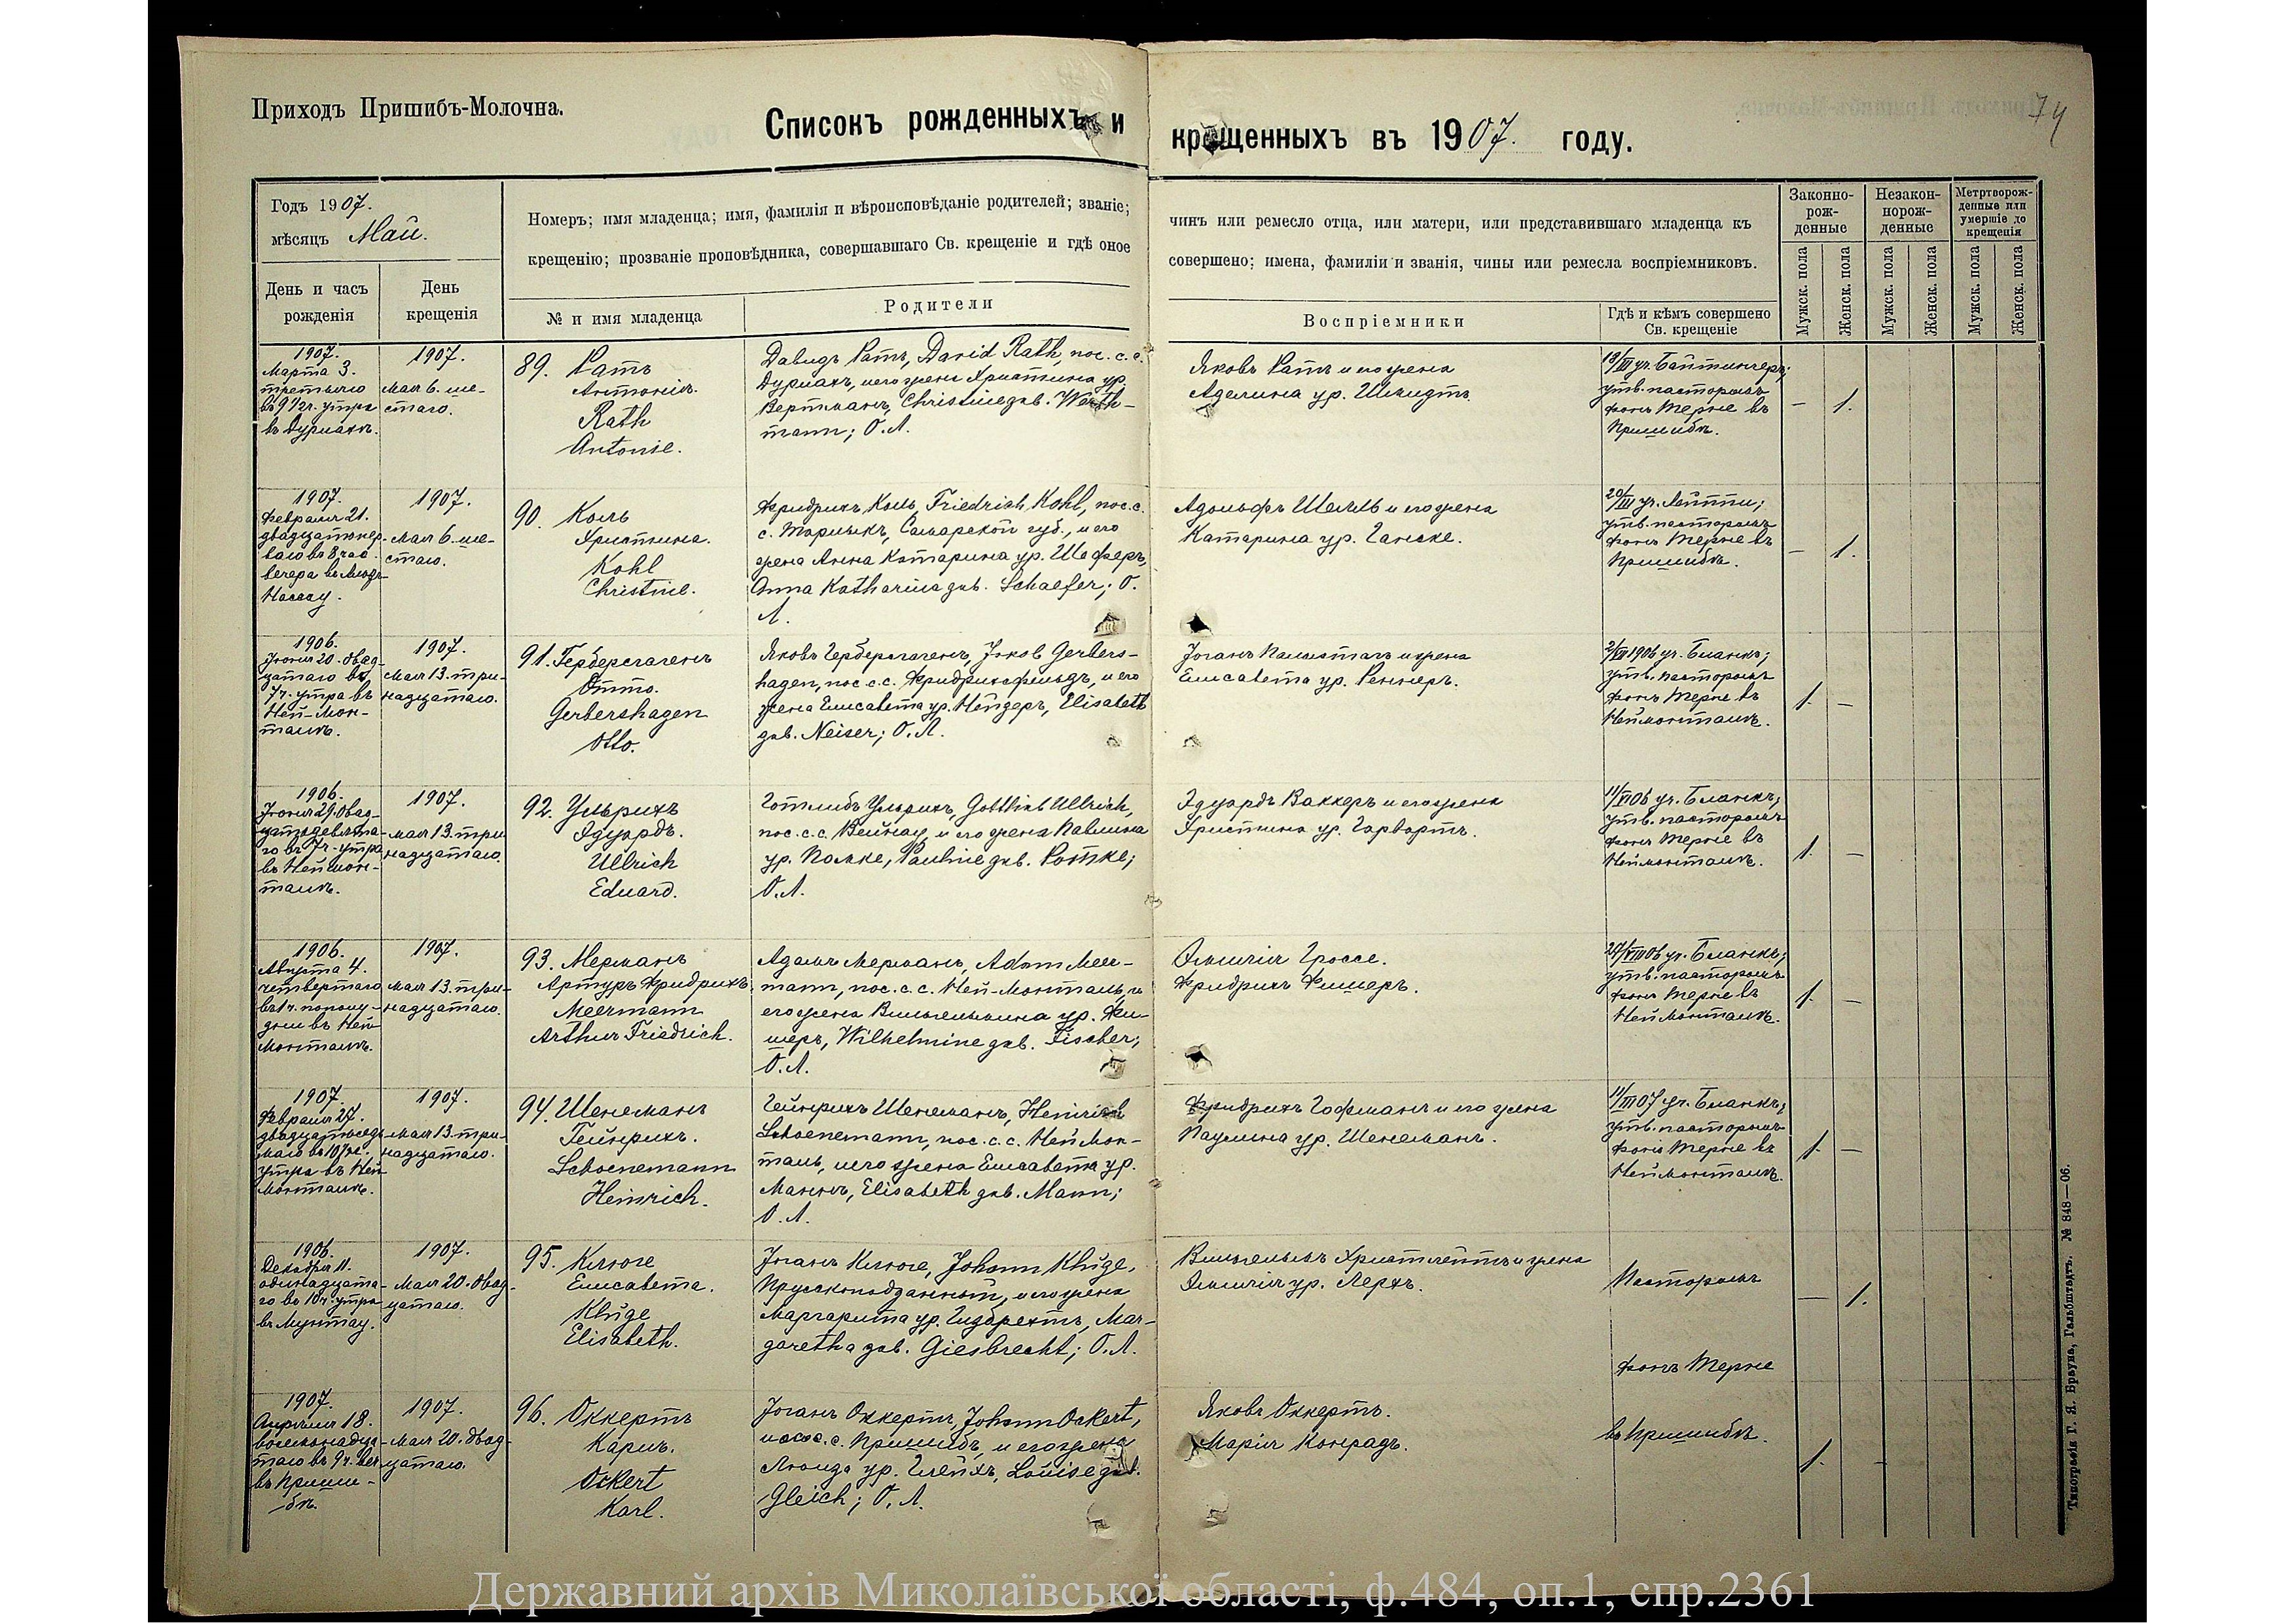 Приходъ Пришибъ-Молочна.
74
Списокъ рожденныхъ и крещенныхъ въ 1907. году.
Годъ 1907.
мѣсяцъ Май.
Номеръ; имя младенца; имя, фамилія и вѣроисповѣданіе родителей; званіе;
крещенію; прозваніе проповѣдника, совершавшаго Св. крещеніе и гдѣ оное
чинъ или ремесло отца, или матери, или представившаго младенца къ
совершено; имена, фамиліи и званія, чины или ремесла воспріемниковъ.
Законно-
рож-
денные
Незакон-
норож-
денные
Метртворож-
денные или
умершіе до
крещенія
День и часъ
рожденія
День
крещенія
№ и имя младенца
Родители
Воспріемники
Гдѣ и кѣмъ совершено
Св. крещеніе
Мужск. пола
Женск. пола
Мужск. пола
Женск. пола
Мужск. пола
Женск. пола
1907.
Марта 3.
третьяго
въ 9 1/2 ч. утра
въ Дурлахѣ.
1907.
Мая 6. ше-
стаго.
89. Ратъ
Антонія.
Rath
Antonie.
Давидъ Ратъ, David Rath, пос. с. с.
Дурлахъ, и его жена Христина ур.
Вертманъ, Christine geb. Werth-
mann; О. Л.
Яковъ Ратъ и его жена
Аделина ур. Шмидтъ.
уч. Баттингеръ;
утв. пасторомъ
фонъ Терне въ
Пришибѣ.
— 1.
1907.
Февраля 21.
двадцатьпер-
ваго въ 8 час.
вечера въ
Нассау.
1907.
Мая 6. ше-
стаго.
90. Коль
Христина.
Kohl
Christine.
Фридрихъ Коль, Friedrich Kohl, пос. с.
с. Самарской губ., и его
жена Анна Катарина ур. Шеферъ,
Anna Katharina geb. Schaefer; О.
Л.
Адольфъ Шелль и его жена
Катарина ур. Ганске.
20/III уч.
утв. пасторомъ
фонъ Терне въ
Пришибѣ.
— 1.
1906.
Іюня 20. двад-
цатаго въ
7 ч. утра въ
Ней-Мон-
талѣ.
1907.
Мая 13. три-
надцатаго.
91. Герберсгагенъ
Отто.
Gerbershagen
Otto.
Яковъ Герберсгагенъ, Jakob Gerbers-
hagen, пос. с. с. Фридрихсфельдъ, и его
жена Елисавета ур. Нейзеръ, Elisabeth
geb. Neiser; О. Л.
Іоганъ и жена
Елисавета ур. Реннеръ.
1906 уч. Бланкъ;
утв. пасторомъ
фонъ Терне въ
Неймонталѣ.
1. —
1906.
Іюня 29. двад-
цатьдевята-
го въ 7 ч. утра
въ Неймон-
талѣ.
1907.
Мая 13. три-
надцатаго.
92. Ульрихъ
Эдуардъ.
Ullrich
Eduard.
Готлибъ Ульрихъ, Gottlieb Ullrich,
пос. с. с. Вейнау, и его жена Павлина
ур. Помке, Pauline geb. Pomke;
О. Л.
Эдуардъ Ваккеръ и его жена
Христина ур. Гарвартъ.
06 уч. Бланкъ;
утв. пасторомъ
фонъ Терне въ
Неймонталѣ.
1. —
1906.
Августа 4.
четвертаго
въ 1 ч. пополу-
дни въ Ней-
Монталѣ.
1907.
Мая 13. три-
надцатаго.
93. Мерманъ
Артуръ Фридрихъ.
Meermann
Arthur Friedrich.
Адамъ Мерманъ, Adam Meer-
mann, пос. с. с. Ней-Монталь, и
его жена Вильгельмина ур. Фи-
шеръ, Wilhelmine geb. Fischer;
О. Л.
Эмилія Гроссе.
Фридрихъ Фишеръ.
27/VIII 06 уч. Бланкъ;
утв. пасторомъ
фонъ Терне въ
Ней Монталѣ.
1. —
1907.
Февраля 27.
двадцатьседь-
маго въ 10 ч.
утра въ Ней
Монталѣ.
1907.
Мая 13. три-
надцатаго.
94. Шенеманъ
Гейнрихъ.
Schoenemann
Heinrich.
Гейнрихъ Шенеманъ, Heinrich
Schoenemann, пос. с. с. Ней Мон-
таль, и его жена Елисавета ур.
Маннъ, Elisabeth geb. Mann;
О. Л.
Фридрихъ Гофманъ и его жена
Паулина ур. Шенеманъ.
11/III 07 уч. Бланкъ;
утв. пасторомъ
фонъ Терне въ
Ней Монталѣ.
1. —
1906.
Декабря 11.
одинадцата-
го въ 10 ч. утра
въ Мунтау.
1907.
Мая 20. двад-
цатаго.
95. Клюге
Елисавета.
Klüge
Elisabeth.
Іоганъ Клюге, Johann Klüge,
Прусскоподданный, и его жена
Маргарита ур. Гизбрехтъ, Mar-
garetha geb. Giesbrecht; О. Л.
Вильгельмъ и жена
Эмилія ур. Лерхъ.
Пасторомъ
— 1.
фонъ Терне
1907.
Апрѣля 18.
восемнадца-
таго въ 9 ч. веч.
въ Приши-
бѣ.
1907.
Мая 20. двад-
цатаго.
96. Оккертъ
Карлъ.
Ockert
Karl.
Іоганъ Оккертъ, Johann Ockert,
пос. с. с. Пришибъ, и его жена
Луиза ур. Глейхъ, Louise geb.
Gleich; О. Л.
Яковъ Оккертъ.
Марія Конрадъ.
въ Пришибѣ.
1. —
Типографія Г. Я. Брауна, Гальбштадтъ. № 848—06.
Державний архів Миколаївської області, ф.484, оп.1, спр.2361